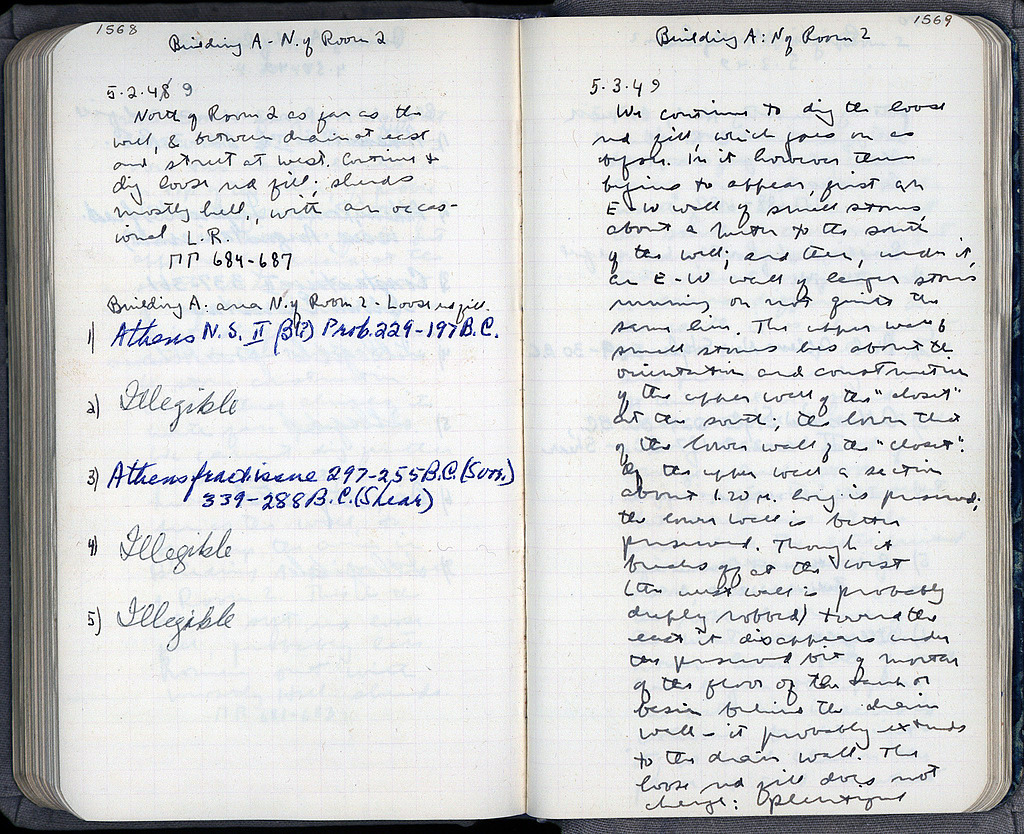 1568
Building A - N. of Room 2
5.2.48 9
North of Room 2 as far as the
well, & between drain at east
and street at west. Continue to
dig loose red fill; sherds
mostly hell., with an occas-
ional L.R.
ΠΠ 684-687
Building A: area N. of Room 2 - Loose red fill.
1) Athens N.S. II (B?) Prob. 229-197 B.C.
2) Illegible
3) Athens fract issue 297-255 B.C. (Svor.)
339-288 B.C. (Shear)
4) Illegible
5) Illegible
1569
Building A: N of Room 2
5.3.49
We continue to dig the loose
red fill, which goes on as
before. In it however there
begins to appear, first an
E-W wall of small stones,
about a meter to the south
of the well; and then, under it,
an E-W wall of larger stones
running on not quite the
same line. The upper wall of
small stones has about the
orientation and construction
of the upper wall of the "closet"
at the south; the lower that
of the lower wall of the "closet".
Of the upper wall a section
about 1.20 m. long is preserved;
the lower wall is better
preserved. Though it
breaks off at the west
(the west wall is probably
deeply robbed) toward the
east it disappears under
the preserved bit of mortar
of the floor of the tank or
basin behind the drain
wall - it probably extends
to the drain wall. The
loose red fill does not
change: